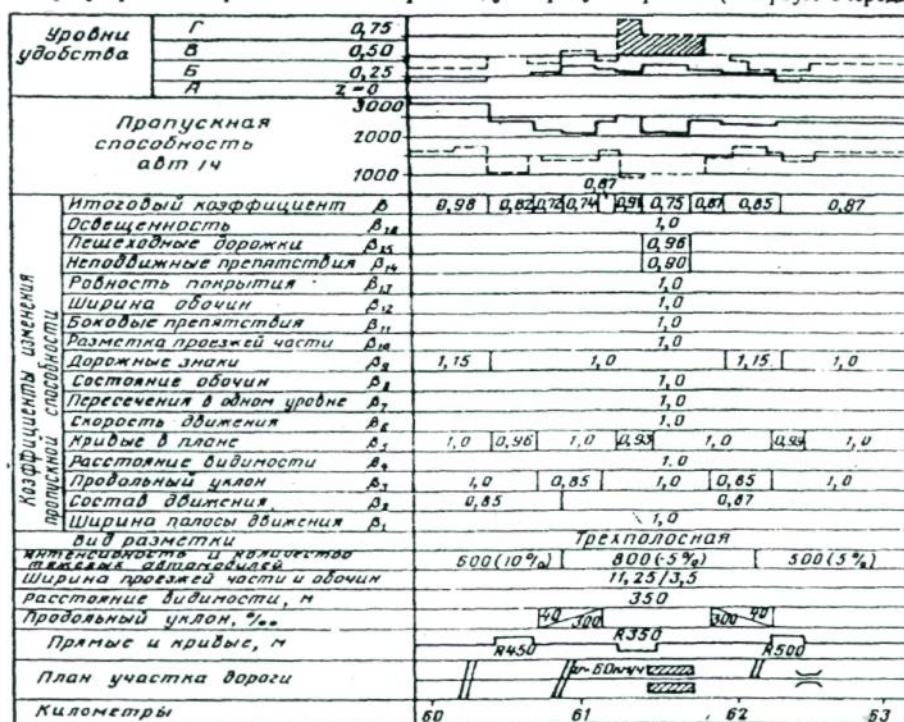 Уровни удобства
Г 0,75
В 0,50
Б 0,25
А z=0
Пропускная способность авт/ч
3000
2000
1000
0,87
Коэффициенты изменения пропускной способности
Итоговый коэффициент β 0,98 0,82 0,72 0,74 0,91 0,75 0,87 0,85 0,87
Освещенность β₁₆ 1,0
Пешеходные дорожки β₁₅ 0,96
Неподвижные препятствия β₁₄ 0,90
Ровность покрытия β₁₃ 1,0
Ширина обочин β₁₂ 1,0
Боковые препятствия β₁₁ 1,0
Разметка проезжей части β₁₀ 1,0
Дорожные знаки β₉ 1,15 1,0 1,15 1,0
Состояние обочин β₈ 1,0
Пересечения в одном уровне β₇ 1,0
Скорость движения β₆ 1,0
Кривые в плане β₅ 1,0 0,96 1,0 0,93 1,0 0,99 1,0
Расстояние видимости β₄ 1.0
Продольный уклон β₃ 1,0 0,85 1,0 0,85 1,0
Состав движения β₂ 0,85 0,87
Ширина полосы движения β₁ 1,0
Вид разметки Трехполосная
Интенсивность и количество тяжелых автомобилей 600(10%) 800(5%) 500(5%)
Ширина проезжей части и обочин 11,25/3,5
Расстояние видимости, м 350
Продольный уклон, ‰ 40 300 300 40
Прямые и кривые, м R450 R350 R500
План участка дороги
Километры 60 61 62 63